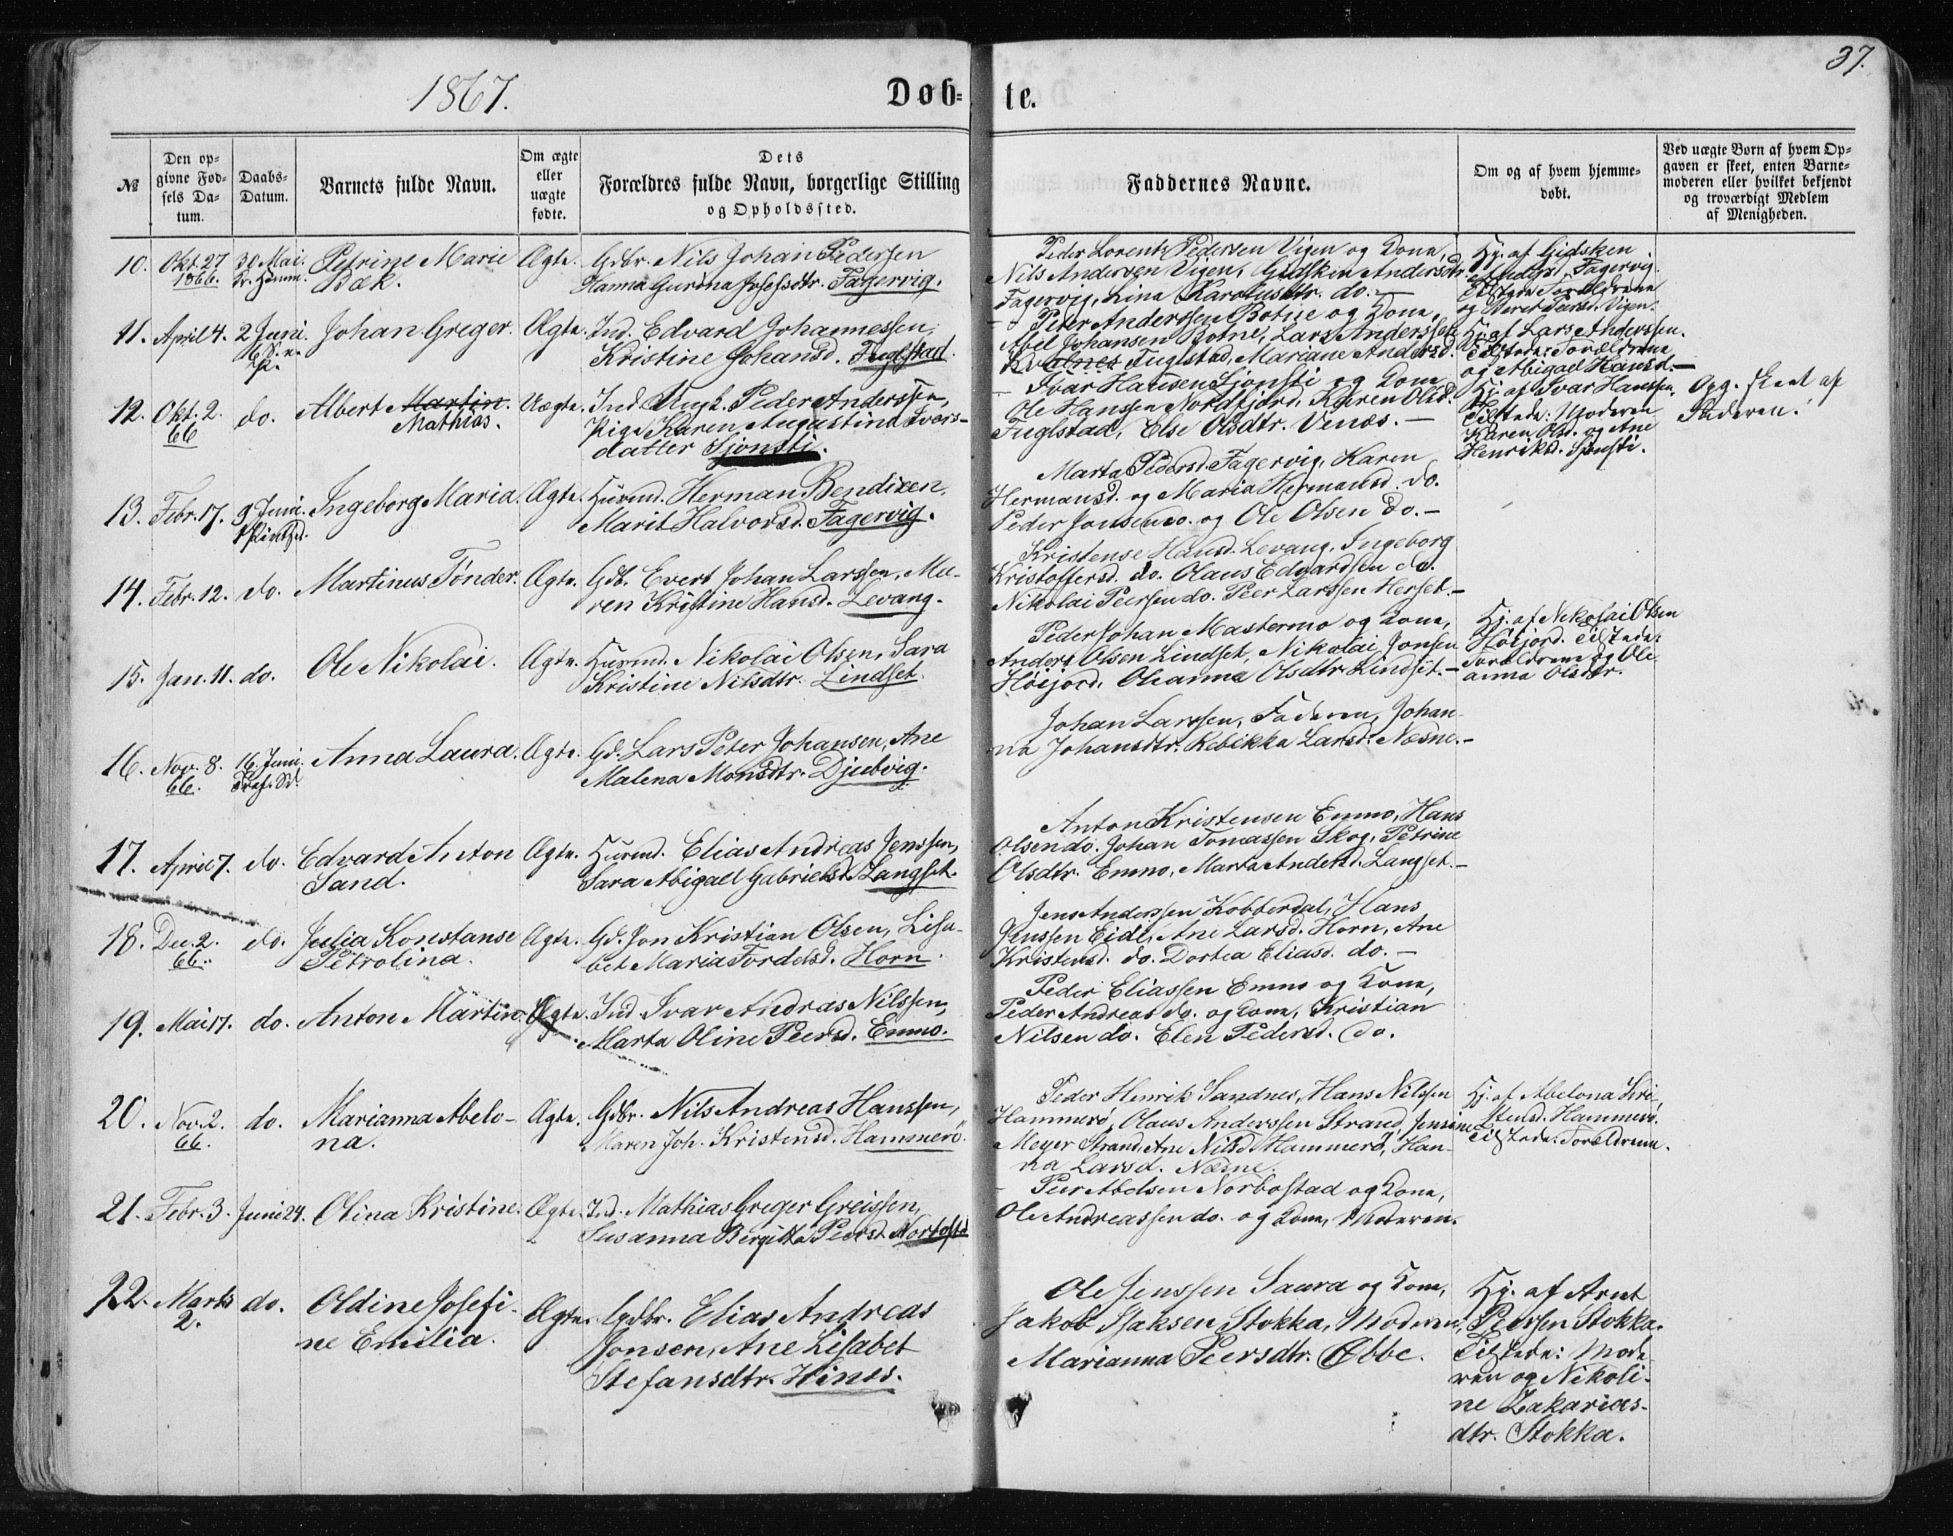 1867.
Døb=
te.
37.
№
Den op=
givne Fød=
sels Da=
tum.
Daabs=
Datum.
Barnets fulde Navn.
Om ægte
eller
uægte
fødte.
Dets
Forældres fulde Navn, borgerlige Stilling
og Opholdssted.
Faddernes Navne.
Om og af hvem hjemme=
døbt.
Ved uægte Børn af hvem Op=
gaven er skeet, enten Barne=
moderen eller hvilket bekjendt
og troværdigt Medlem
af Menigheden.
10.
Okt. 27
1866.
30 Mai.
Kr. Himm.
Petrine Marie
Bæk.
Ægte.
Gdbr. Nils Johan Pedersen
Hanna Gurina Josefsdtr. Fagervig.
Peder Lorents Pedersen Vigen og Kone,
Nils Andersen Vigen, Gidsken Andersdtr.
Fagervig, Lina Karolusdtr. do. –
Hj. af Gidsken
Andsd. Fagervig.
Tilstede Forældrene
og Beret Persd. Vigen.
11.
April 4.
2 Juni.
Johan Greger.
Ægte.
Ind. Edvard Johannessen,
Kristine Johansd. Fuglstad.
Peter Anderssen Botne og Kone,
Abel Johansen Botne, Lars Anderssen
Kvalnes Fuglstad, Mariane Andersd.
Hj. af Lars Anderssen.
Tilstede: Forældrene
og Abigael Hansd. –
12.
Okt. 2.
66
do.
Albert Martin.
Mathias.
Uægte.
Ind. Ungk. Peder Anderssen,
Pige Karen Augustina Ivars-
datter Sjonsti.
Ivar Hansen Sjonsti og Kone,
Ole Hanssen Nordfjord, Karen Olsd.
Fuglstad, Else Olsdtr. Venæs. –
Hj. af Ivar Hanssen.
Tilstede: Moderen
Karen Olsd. og Ane
Henriksd. Sjonsti.
Opg. skeet af
Faderen.
13.
Febr. 17.
9 Juni.
Pintsed.
Ingeborg Maria.
Ægte.
Husmd. Herman Bendixen,
Marit Halvorsd. Fagervig.
Marta Pedersd. Fagervig, Karen
Hermansd. og Maria Hermansd. do.
Peder Jonsen do. og Ole Olsen do. –
14.
Febr. 12.
do.
Martinus Tønder.
Ægte.
Gdb. Evert Johan Larssen, Ma-
ren Kristine Hansd. Levang.
Kristense Hansd. Levang, Ingeborg
Kristoffersd. do. Olaus Edvardsen do.
Nikolai Peersen do. Peer Larssen Herset. –
15.
Jan. 11.
do.
Ole Nikolai.
Ægte.
Husmd. Nikolai Olsen, Sara
Kristine Nilsdtr. Lindset.
Peder Johan Mastermo og Kone,
Anders Olsen Lindset, Nikolai Jonsen
Høijord, Oleanna Olsdtr. Lindset. –
Hj. af Nikolai Olsen
Høijord. Tilstede:
Forældrene og Ole-
anna Olsdtr.
16.
Nov. 8.
66.
16. Juni.
Tref. Sd.
Anna Laura.
Ægte.
Gd. Lars Peter Johansen, Ane
Malena Monsdtr. Djubvig.
Johan Larssen, Faderen, Johan-
na Johansdtr. Rebekka Larsd. Næsne. –
17.
April 7.
do.
Edvard Anton
Sand.
Ægte.
Husmd. Elias Andreas Jenssen,
Sara Abigael Gabrielsd. Langset.
Anton Kristensen Emmo, Hans
Olsen do. Johan Tomassen Skog, Petrine
Olsdtr. Emmo, Marta Andersd. Langset. –
18.
Dec. 2.
66.
do.
Julia Konstanse
Petrolina.
Ægte.
Gd. Jon Kristian Olsen, Lisa-
bet Maria Tordelsd. Horn.
Jens Anderssen Kobberdal, Hans
Jenssen Eide, Ane Larsd. Horn, Ane
Kristensd. do. Dortea Eliasd. do. –
19.
Mai 17.
do.
Anton Martin.
Ægte.
Ind Ivar Andreas Nilssen,
Marta Oline Peersd. Emmo.
Peder Eliassen Emmo og Kone,
Peder Andreas do. og Kone, Kristian
Nilsen do. Elen Pedersd. do.
20.
Nov. 2.
66.
do.
Marianna Abelo-
na.
Ægte.
Gdbr. Nils Andreas Hanssen,
Maren Joh. Kristensd. Hammerø.
Peder Henrik Sandnes, Hans Nilssen
Hammerø, Olaus Anderssen Strand, Jensine
Meyer Strand, Ane Nilsd. Hammerø, Han-
na Larsd. Næsne.
Hj. af Abelona Kri-
stensd. Hammerø.
Tilstede: Forældrene.
21.
Febr. 3.
Juni 24.
Olina Kristine.
Ægte.
Ind. Mathias Greger Greissen,
Susanna Bergitta Peersd. Norbostd
Peer Abelsen Norbostad og Kone,
Ole Andreassen do. og Kone, Moderen.
22.
Marts
2.
do.
Oldine Josefi-
ne Emilia.
Ægte.
Gdbr. Elias Andreas
Jonsen, Ane Lisabet
Stefansdtr. Hines.
Ole Jenssen Saura og Kone,
Jakob Isaksen Stokka, Moderen,
Marianna Peersdtr. Ebbe.
Hj. af Arnt
Peersen Stokka.
Tilstede: Mode-
ren og Nikoli-
ne Zakarias-
dtr. Stokka.